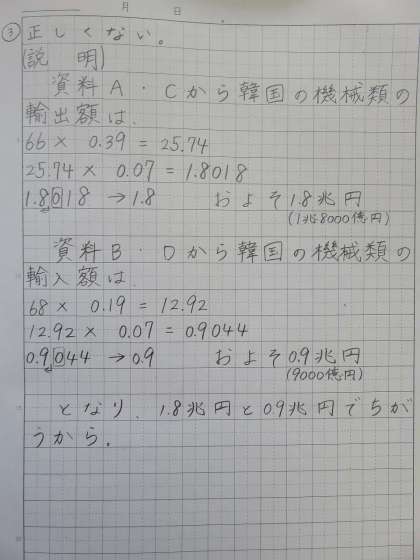 月 日
③ 正しくない。
(説 明)
資料A・Cから韓国の機械類の
輸出額は、
66 × 0.39 = 25.74
25.74 × 0.07 = 1.8018
1.8018 → 1.8 およそ1.8兆円
(1兆8000億円)
資料B・Dから韓国の機械類の
輸入額は、
68 × 0.19 = 12.92
12.92 × 0.07 = 0.9044
0.9044 → 0.9 およそ0.9兆円
(9000億円)
となり、1.8兆円と0.9兆円でちが
うから。